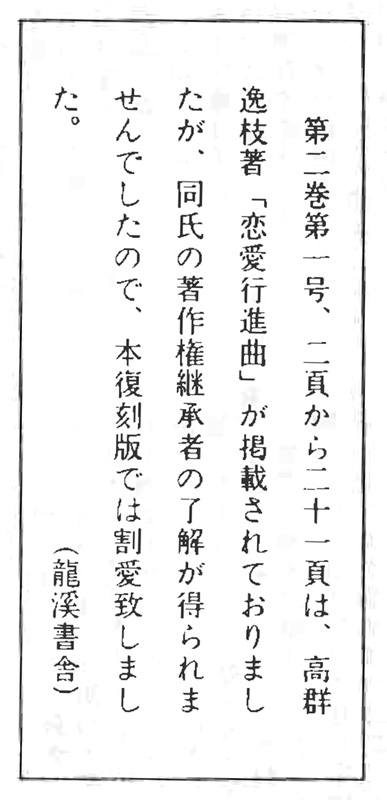 第二巻第一号、二頁から二十一頁は、高群
逸枝著「恋愛行進曲」が掲載されておりまし
たが、同氏の著作権継承者の了解が得られま
せんでしたので、本復刻版では割愛致しまし
た。
（龍溪書舎）